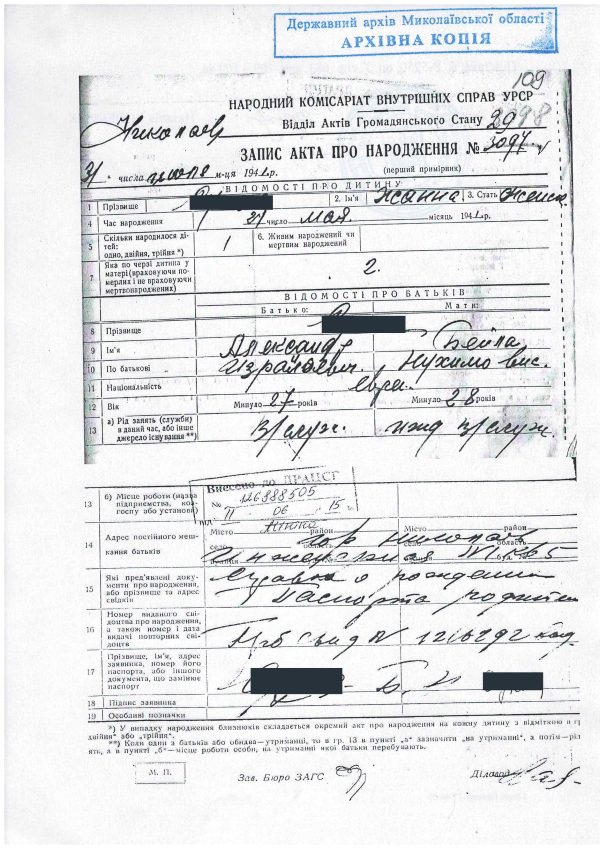 Державний архів Миколаївської області
АРХІВНА КОПІЯ
109
2898
НАРОДНИЙ КОМІСАРІАТ ВНУТРІШНІХ СПРАВ УРСР
Николаев
Відділ Актів Громадянського Стану
ЗАПИС АКТА ПРО НАРОДЖЕННЯ №
31 числа июля м-ця 194 р. (перший примірник)
ВІДОМОСТІ ПРО ДИТИНУ
1 Прізвище 2. Ім'я Жанна 3. Стать женск.
4 Час народження 27 число мая місяць 194 р.
5 Скільки народилося дітей: одно, двійня, трійня *) 1 6. Живим народжений чи мертвим народжений
7 Яка по черзі дитина у матері (враховуючи померлих і не враховуючи мертвонароджених) 2.
ВІДОМОСТІ ПРО БАТЬКІВ
Батько: Мати:
8 Прізвище
9 Ім'я Александр Бейла
10 По батькові Израилевич Нухимовна
11 Національність евреи
12 Вік Минуло 27 років Минуло 28 років
13 а) Рід занять (служби) в даний час, або інше джерело існування **) в/служ. ижд в/служ.
Внесено до ДРАЦСГ
№ 126888505
від 11 06 15 р.
13 б) Місце роботи (назва підприємства, колгоспу або установи)
14 Адрес постійного мешкання батьків Місто район Місто район
село область гор Николаев область
вулиця Инженерная буд. №
15 Які пред'явлені документи про народження, або прізвище та адрес свідків Справка о рождении
Паспорта родителей
16 Номер виданого свідоцтва про народження, а також номер і дата видачі повторних свідоцтв
17 Прізвище, ім'я, адрес заявника, номер його паспорта, або іншого документа, що замінює паспорт
18 Підпис заявника
19 Особливі позначки
*) У випадку народження близнюків складається окремий акт про народження на кожну дитину з відміткою в гр
двійня" або „трійня".
**) Коли один з батьків або обидва—утриманці, то в гр. 13 в пункті „а" зазначити „на утриманні", а потім—
ять, а в пункті „б"—місце роботи особи, на утриманні якої батьки перебувають.
М. П. Зав. Бюро ЗАГС Діловод